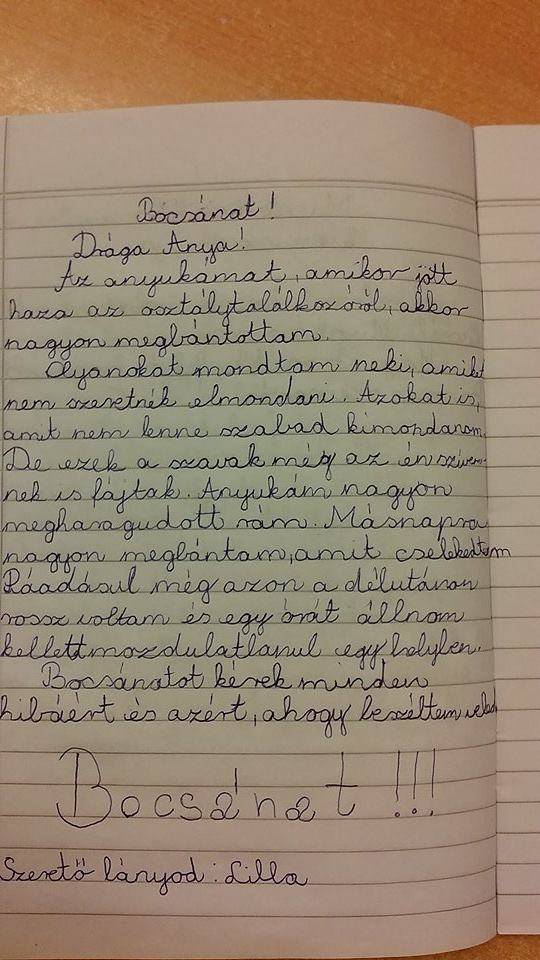 Bocsánat!
Drága Anya!
Az anyukámat, amikor jött
haza az osztálytalálkozóról, akkor
nagyon megbántottam.
Olyanokat mondtam neki, amiket
nem szeretnék elmondani. Azokat is,
amit nem lenne szabad kimondanom.
De ezek a szavak még az én szívem-
nek is fájtak. Anyukám nagyon
megharagudott rám. Másnapra
nagyon megbántam, amit cselekedtem
Ráadásul még azon a délutánon
rossz voltam és egy órát állnom
kellett mozdulatlanul egy helyben.
Bocsánatot kérek minden
hibáért és azért, ahogy beszéltem veled
Bocsánat!!!
Szerető lányod: Lilla